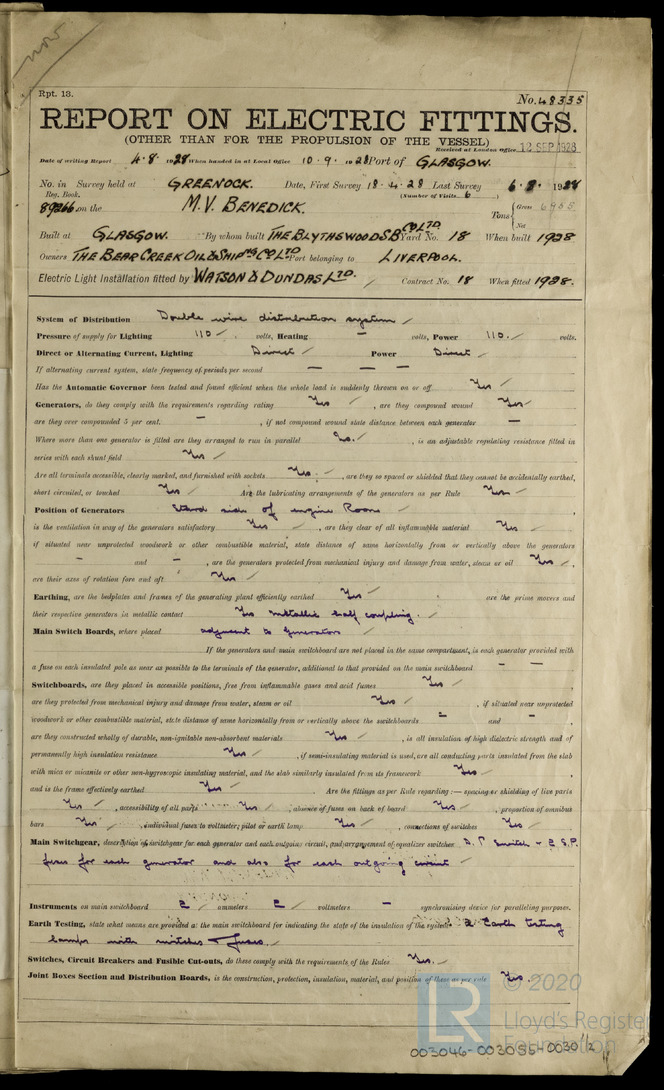 now
Rpt. 13.
No. 48335
REPORT ON ELECTRIC FITTINGS.
(OTHER THAN FOR THE PROPULSION OF THE VESSEL)
Received at London Office 12 SEP 1928
Date of writing Report 4.8.1928 When handed in at Local Office 10.9.1928 Port of GLASGOW.
No. in Survey held at GREENOCK. Date, First Survey 18.4.28 Last Survey 6.8.1928
Reg. Book. (Number of Visits 6)
89266 on the M.V. BENEDICK. Tons { Gross 6955 Net
Built at GLASGOW. By whom built THE BLYTHSWOOD SB CO LTD. Yard No. 18 When built 1928
Owners THE BEAR CREEK OIL & SHIPNG CO LTD Port belonging to LIVERPOOL.
Electric Light Installation fitted by WATSON & DUNDAS LTD. Contract No. 18 When fitted 1928.
System of Distribution Double wire distribution system
Pressure of supply for Lighting 110 volts, Heating — volts, Power 110 volts.
Direct or Alternating Current, Lighting Direct Power Direct
If alternating current system, state frequency of periods per second — — —
Has the Automatic Governor been tested and found efficient when the whole load is suddenly thrown on or off Yes
Generators, do they comply with the requirements regarding rating Yes, are they compound wound Yes
are they over compounded 5 per cent. —, if not compound wound state distance between each generator —
Where more than one generator is fitted are they arranged to run in parallel No., is an adjustable regulating resistance fitted in
series with each shunt field Yes
Are all terminals accessible, clearly marked, and furnished with sockets Yes., are they so spaced or shielded that they cannot be accidentally earthed,
short circuited, or touched Yes Are the lubricating arrangements of the generators as per Rule Yes
Position of Generators side of engine Room
is the ventilation in way of the generators satisfactory Yes, are they clear of all inflammable material Yes
if situated near unprotected woodwork or other combustible material, state distance of same horizontally from or vertically above the generators
— and —, are the generators protected from mechanical injury and damage from water, steam or oil Yes,
are their axes of rotation fore and aft Yes
Earthing, are the bedplates and frames of the generating plant efficiently earthed Yes are the prime movers and
their respective generators in metallic contact Yes metallic half coupling.
Main Switch Boards, where placed adjacent to generators
If the generators and main switchboard are not placed in the same compartment, is each generator provided with
a fuse on each insulated pole as near as possible to the terminals of the generator, additional to that provided on the main switchboard — —
Switchboards, are they placed in accessible positions, free from inflammable gases and acid fumes Yes,
are they protected from mechanical injury and damage from water, steam or oil Yes, if situated near unprotected
woodwork or other combustible material, state distance of same horizontally from or vertically above the switchboards — and —,
are they constructed wholly of durable, non-ignitable non-absorbent materials Yes, is all insulation of high dielectric strength and of
permanently high insulation resistance Yes, if semi-insulating material is used, are all conducting parts insulated from the slab
with mica or micanite or other non-hygroscopic insulating material, and the slab similarly insulated from its framework Yes,
and is the frame effectively earthed Yes. Are the fittings as per Rule regarding:— spacing or shielding of live parts
Yes, accessibility of all parts Yes, absence of fuses on back of board Yes, proportion of omnibus
bars Yes, individual fuses to voltmeter, pilot or earth lamp Yes, connections of switches Yes
Main Switchgear, description of switchgear for each generator and each outgoing circuit, and arrangement of equalizer switches D.P. Switch & 2 S.P.
fuses for each generator and also for each outgoing circuit
Instruments on main switchboard 2 ammeters 2 voltmeters — synchronising device for paralleling purposes.
Earth Testing, state what means are provided at the main switchboard for indicating the state of the insulation of the system 2 Earth testing
lamps with switches & fuses.
Switches, Circuit Breakers and Fusible Cut-outs, do these comply with the requirements of the Rules Yes.
Joint Boxes Section and Distribution Boards, is the construction, protection, insulation, material, and position of these as per rule Yes.
© 2020
LR
Lloyd's Register
Foundation
003046-003055-0030 1/2